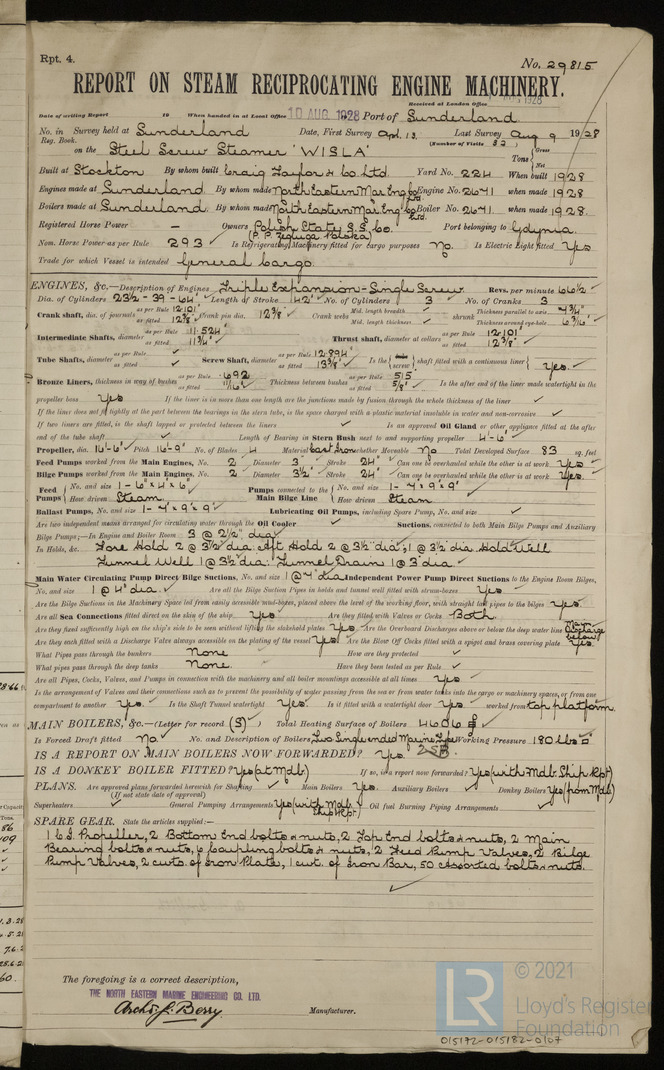 Rpt. 4.
No. 29815
REPORT ON STEAM RECIPROCATING ENGINE MACHINERY.
Received at London Office
AUG 1928
Date of writing Report 19 When handed in at Local Office 10 AUG. 1928 Port of Sunderland
No. in Survey held at Sunderland Date, First Survey Apl. 13. Last Survey Aug 9 1928
Reg. Book. (Number of Visits 32)
on the Steel Screw Steamer 'WISLA' Tons { Gross Net
Built at Stockton By whom built Craig Taylor & Co Ltd Yard No. 224 When built 1928
Engines made at Sunderland By whom made North Eastern Mar Eng Co Ltd. Engine No. 2641 when made 1928
Boilers made at Sunderland. By whom made North Eastern Mar Eng Co Ltd. Boiler No. 2641 when made 1928.
Registered Horse Power — Owners Polish State S.S. Co. Port belonging to Gdynia.
(P.P. Zegluga Polska)
Nom. Horse Power as per Rule 293 Is Refrigerating Machinery fitted for cargo purposes No. Is Electric Light fitted Yes
Trade for which Vessel is intended General Cargo.
ENGINES, &c.—Description of Engines Triple Expansion - Single Screw Revs. per minute 66½
Dia. of Cylinders 23½ - 39 - 64" Length of Stroke 42" No. of Cylinders 3 No. of Cranks 3
Crank shaft, dia. of journals as per Rule 12.101 as fitted 12⅜" Crank pin dia. 12⅜" Crank webs Mid. length breadth ✓ Mid. length thickness ✓ shrunk Thickness parallel to axis 7¾" Thickness around eye-hole 6 3/16"
Intermediate Shafts, diameter as per Rule 11.524" as fitted 11¾" Thrust shaft, diameter at collars as per Rule 12.101 as fitted 12⅜"
Tube Shafts, diameter as per Rule ✓ as fitted ✓ Screw Shaft, diameter as per Rule 12.894" as fitted 13⅜" Is the { tube screw } shaft fitted with a continuous liner { Yes.
Bronze Liners, thickness in way of bushes as per Rule .692 as fitted 11/16" Thickness between bushes as per Rule .515 as fitted 5/8" Is the after end of the liner made watertight in the
propeller boss Yes If the liner is in more than one length are the junctions made by fusion through the whole thickness of the liner ✓
If the liner does not fit tightly at the part between the bearings in the stern tube, is the space charged with a plastic material insoluble in water and non-corrosive ✓
If two liners are fitted, is the shaft lapped or protected between the liners ✓ Is an approved Oil Gland or other appliance fitted at the after
end of the tube shaft ✓ Length of Bearing in Stern Bush next to and supporting propeller 4'-6"
Propeller, dia. 16'-6" Pitch 16'-9" No. of Blades 4 Material Cast Iron whether Moveable No Total Developed Surface 83 sq. feet
Feed Pumps worked from the Main Engines, No. 2 Diameter 3" Stroke 24" Can one be overhauled while the other is at work Yes
Bilge Pumps worked from the Main Engines, No. 2 Diameter 3½" Stroke 24" Can one be overhauled while the other is at work Yes.
Feed Pumps { No. and size 1 - 6" x 4" x 6" How driven Steam Pumps connected to the Main Bilge Line { No. and size 1 - 7" x 9" x 9" How driven Steam
Ballast Pumps, No. and size 1 - 7" x 9" x 9" Lubricating Oil Pumps, including Spare Pump, No. and size ✓
Are two independent means arranged for circulating water through the Oil Cooler ✓ Suctions, connected to both Main Bilge Pumps and Auxiliary
Bilge Pumps;—In Engine and Boiler Room 3 @ 2½" dia
In Holds, &c. Fore Hold 2 @ 3½" dia. Aft Hold 2 @ 3½" dia; 1 @ 3½" dia Hold Well
Tunnel Well 1 @ 3½" dia. Tunnel Drain 1 @ 3" dia
Main Water Circulating Pump Direct Bilge Suctions, No. and size 1 @ 7" dia Independent Power Pump Direct Suctions to the Engine Room Bilges,
No. and size 1 @ 4" dia. Are all the Bilge Suction Pipes in holds and tunnel well fitted with strum-boxes Yes
Are the Bilge Suctions in the Machinery Space led from easily accessible mud-boxes, placed above the level of the working floor, with straight tail pipes to the bilges Yes.
Are all Sea Connections fitted direct on the skin of the ship Yes Are they fitted with Valves or Cocks Both.
Are they fixed sufficiently high on the ship's side to be seen without lifting the stokehold plates Yes Are the Overboard Discharges above or below the deep water line Main discharge below
Are they each fitted with a Discharge Valve always accessible on the plating of the vessel Yes Are the Blow Off Cocks fitted with a spigot and brass covering plate Yes.
What Pipes pass through the bunkers None How are they protected ✓
What pipes pass through the deep tanks None. Have they been tested as per Rule ✓
Are all Pipes, Cocks, Valves, and Pumps in connection with the machinery and all boiler mountings accessible at all times Yes
Is the arrangement of Valves and their connections such as to prevent the possibility of water passing from the sea or from water tanks into the cargo or machinery spaces, or from one
compartment to another Yes. Is the Shaft Tunnel watertight Yes. Is it fitted with a watertight door Yes worked from top platform.
MAIN BOILERS, &c.—(Letter for record (S)) Total Heating Surface of Boilers 4606
Is Forced Draft fitted No No. and Description of Boilers Two Single ended Marine Type Working Pressure 180 lbs □"
2SB
IS A REPORT ON MAIN BOILERS NOW FORWARDED? Yes.
IS A DONKEY BOILER FITTED? Yes (at Mdb) If so, is a report now forwarded? Yes (with Mdb. Ship Rpt)
PLANS. Are approved plans forwarded herewith for Shafting Main Boilers Yes. Auxiliary Boilers ✓ Donkey Boilers Yes (from Mdb)
(If not state date of approval)
Superheaters ✓ General Pumping Arrangements Yes (with Mdb. Ship Rpt) Oil fuel Burning Piping Arrangements ✓
SPARE GEAR. State the articles supplied:—
1 C.I. Propeller, 2 Bottom End bolts & nuts, 2 Top End bolts & nuts, 2 Main
Bearing bolts & nuts, 6 Coupling bolts & nuts, 2 Feed Pump Valves, 2 Bilge
Pump Valves, 2 cwts. of Iron Plate, 1 cwt. of Iron Bar, 50 assorted bolts & nuts.
The foregoing is a correct description,
THE NORTH EASTERN MARINE ENGINEERING CO. LTD.
Archd. J. Berry Manufacturer.
LR
© 2021
Lloyd's Register
Foundation
015172-015182-0107